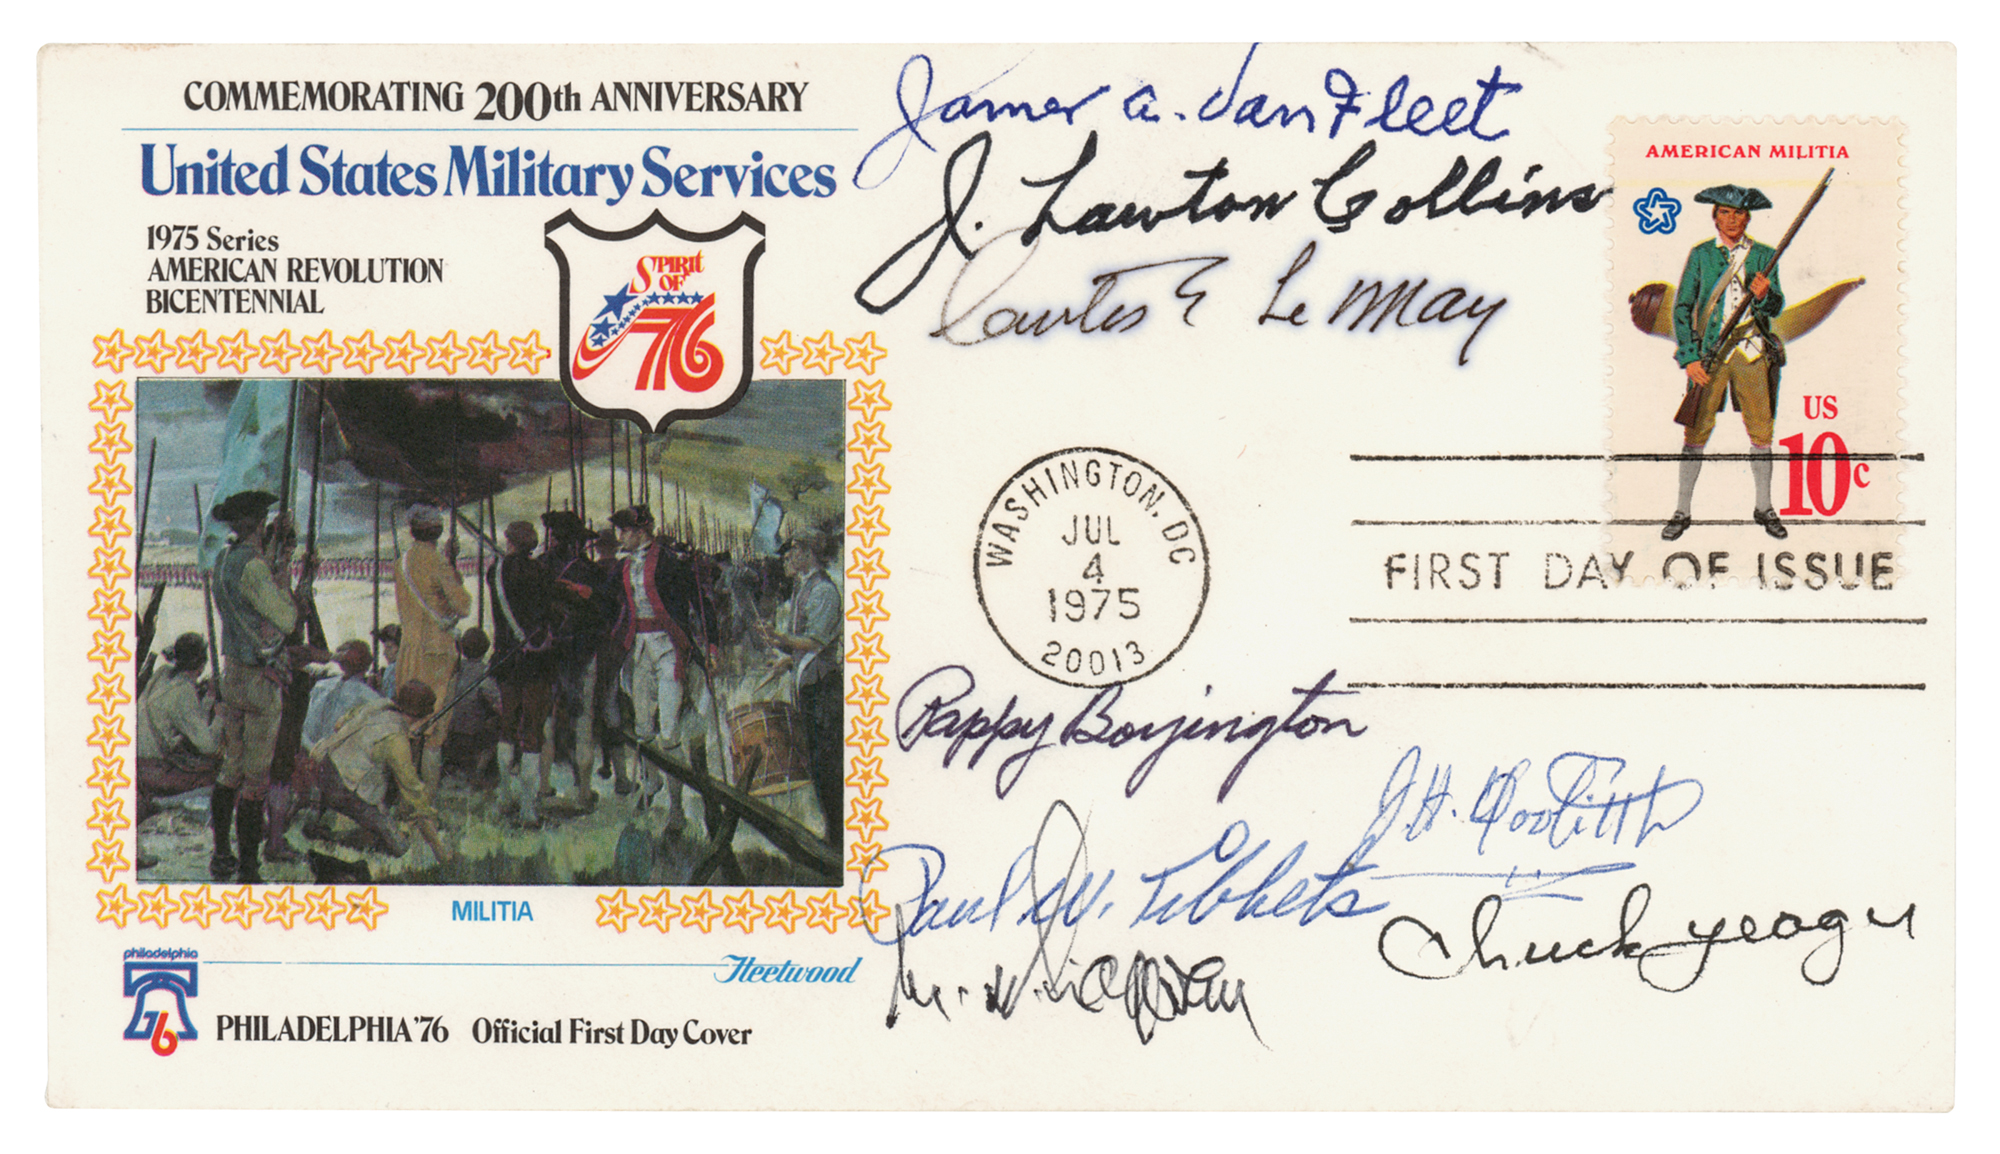 COMMEMORATING 200th ANNIVERSARY
United States Military Services
1975 Series
AMERICAN REVOLUTION
BICENTENNIAL
SPIRIT
OF
76
MILITIA
Fleetwood
philadelphia
76
PHILADELPHIA '76 Official First Day Cover
James A. Van Fleet
J. Lawton Collins
Curtis E LeMay
AMERICAN MILITIA
US
10c
WASHINGTON, DC
JUL
4
1975
20013
FIRST DAY OF ISSUE
Pappy Boyington
J.H. Doolittle
Paul W. Tibbets
Chuck Yeager
M. B. Ridgway